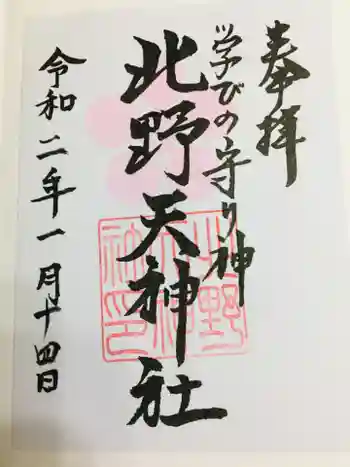 奉拝
学びの守り神
北野天神社
令和二年一月十四日
北野天神神印